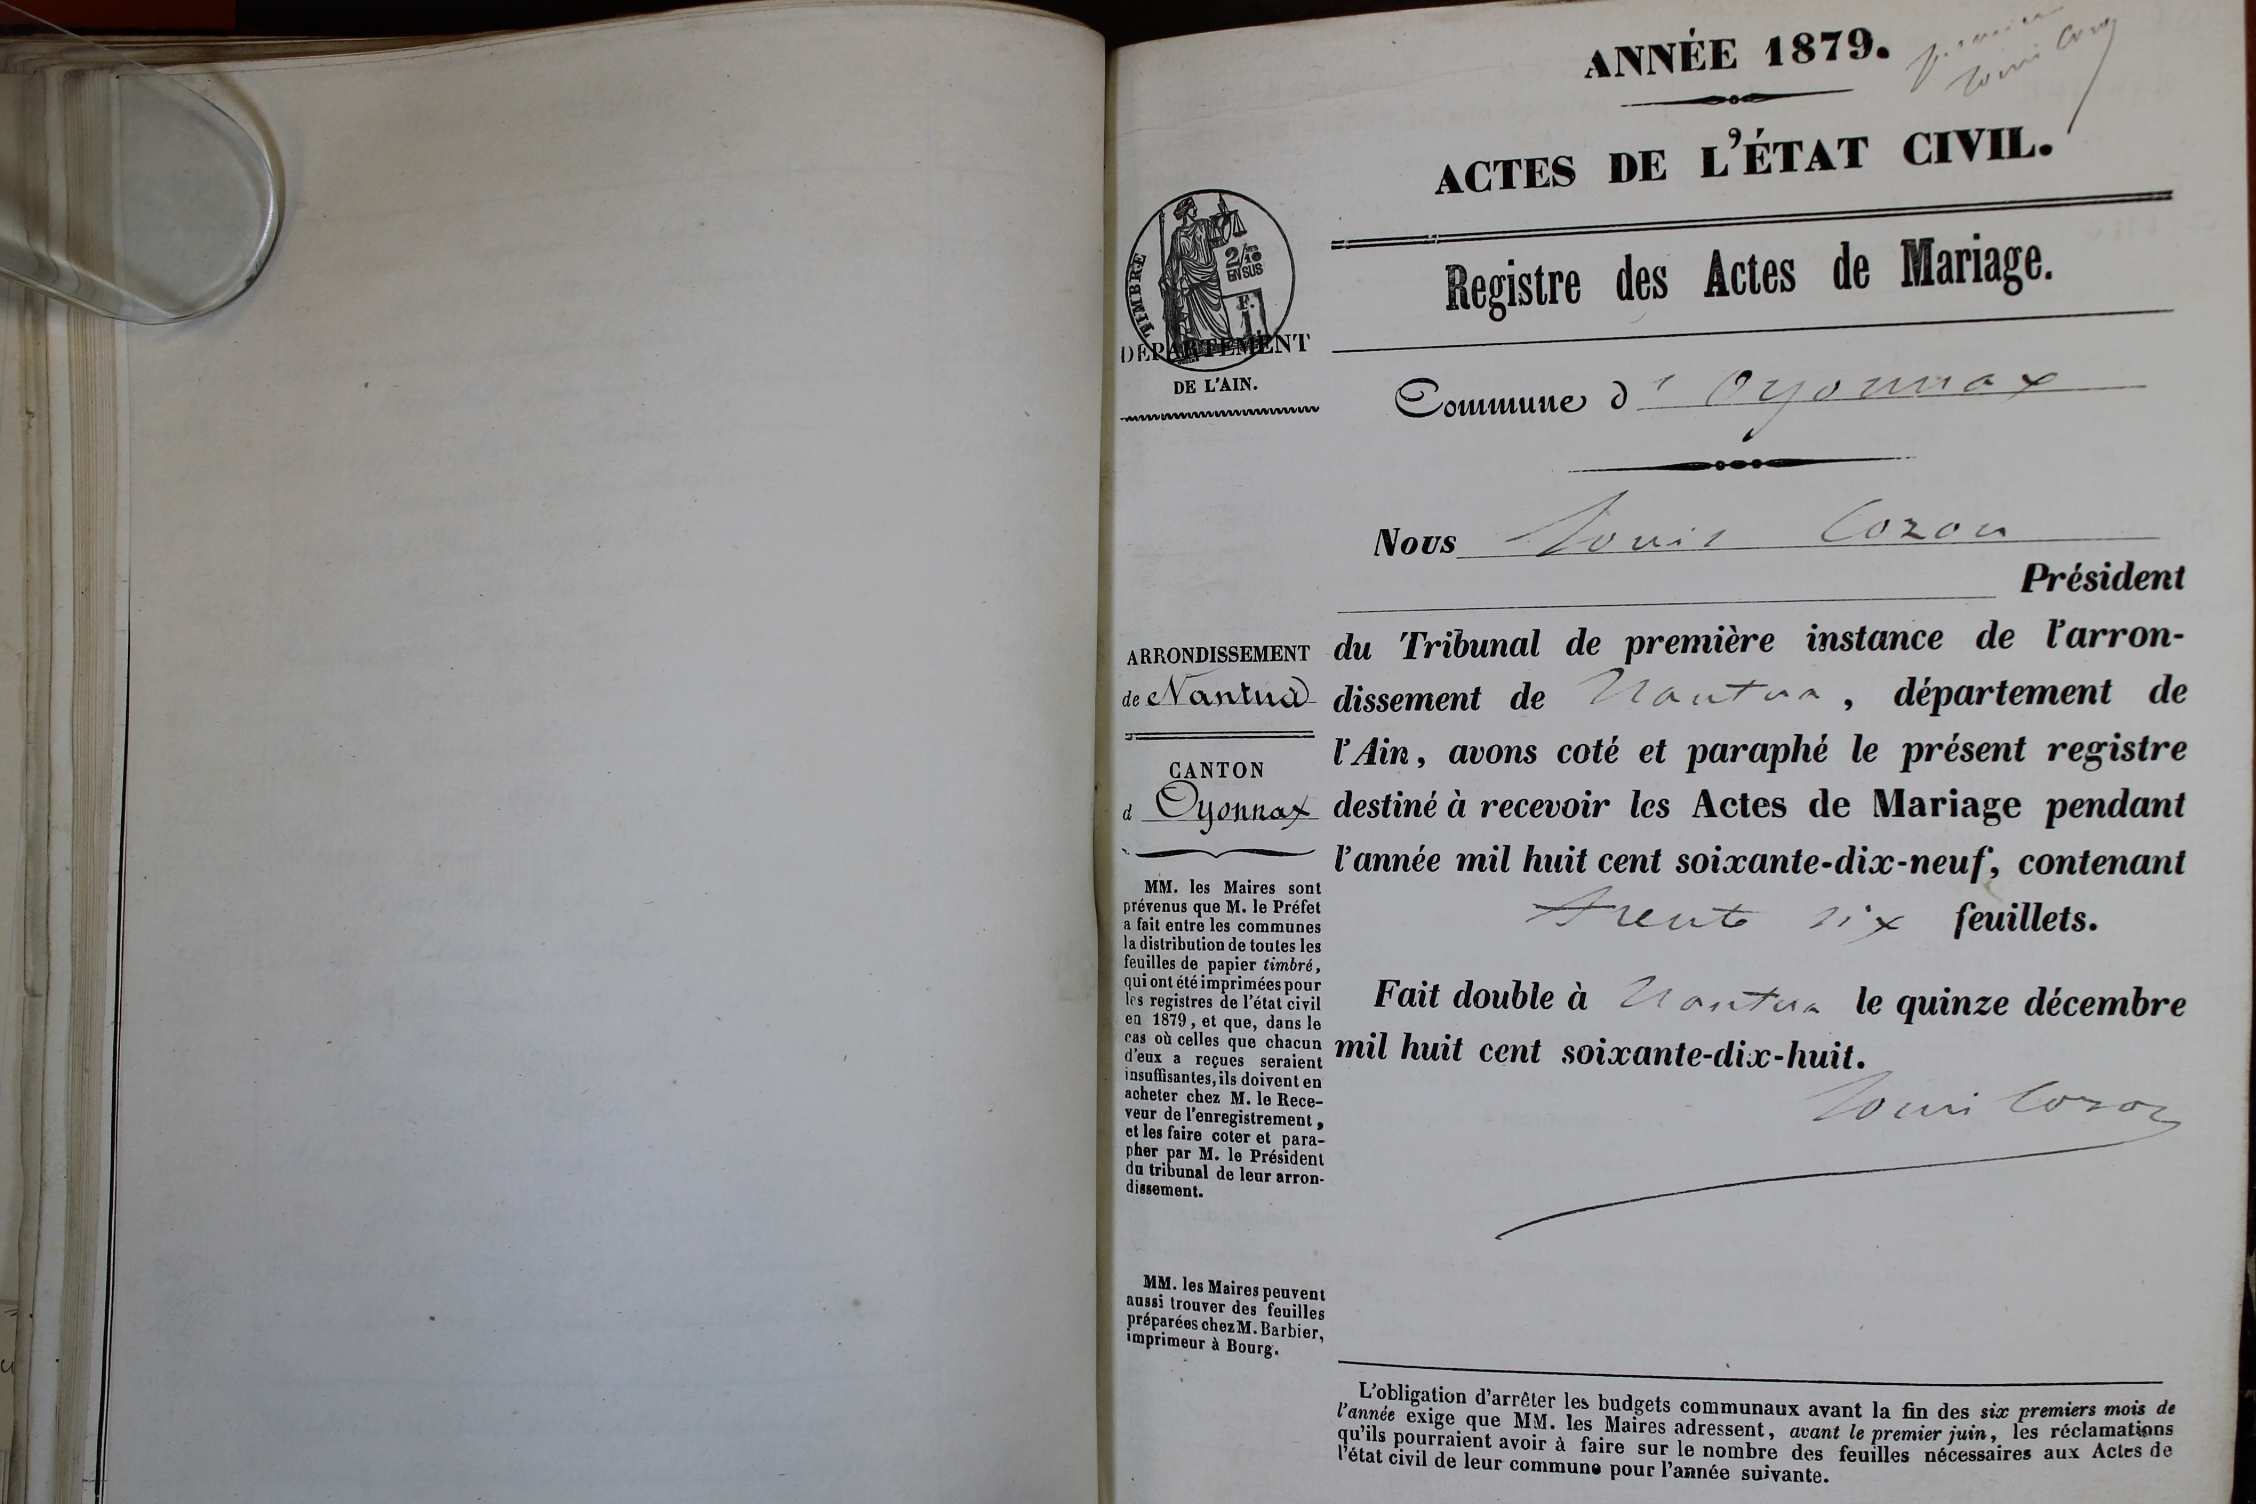 ANNÉE 1879.
premier
Louis Coz
ACTES DE L'ÉTAT CIVIL.
Registre des Actes de Mariage.
TIMBRE
2/10
EN SUS
F.
1
DÉPARTEMENT
DE L'AIN.
Commune d'Oyonnax
Nous Louis Cozon
Président
ARRONDISSEMENT
de Nantua
CANTON
d Oyonnax
du Tribunal de première instance de l'arron-
dissement de Nantua, département de
l'Ain, avons coté et paraphé le présent registre
destiné à recevoir les Actes de Mariage pendant
l'année mil huit cent soixante-dix-neuf, contenant
trente six feuillets.
Fait double à Nantua le quinze décembre
mil huit cent soixante-dix-huit.
Louis Cozon
MM. les Maires sont
prévenus que M. le Préfet
a fait entre les communes
la distribution de toutes les
feuilles de papier timbré,
qui ont été imprimées pour
les registres de l'état civil
en 1879, et que, dans le
cas où celles que chacun
d'eux a reçues seraient
insuffisantes, ils doivent en
acheter chez M. le Rece-
veur de l'enregistrement,
et les faire coter et para-
pher par M. le Président
du tribunal de leur arron-
dissement.
MM. les Maires peuvent
aussi trouver des feuilles
préparées chez M. Barbier,
imprimeur à Bourg.
L'obligation d'arrêter les budgets communaux avant la fin des six premiers mois de
l'année exige que MM. les Maires adressent, avant le premier juin, les réclamations
qu'ils pourraient avoir à faire sur le nombre des feuilles nécessaires aux Actes de
l'état civil de leur commune pour l'année suivante.